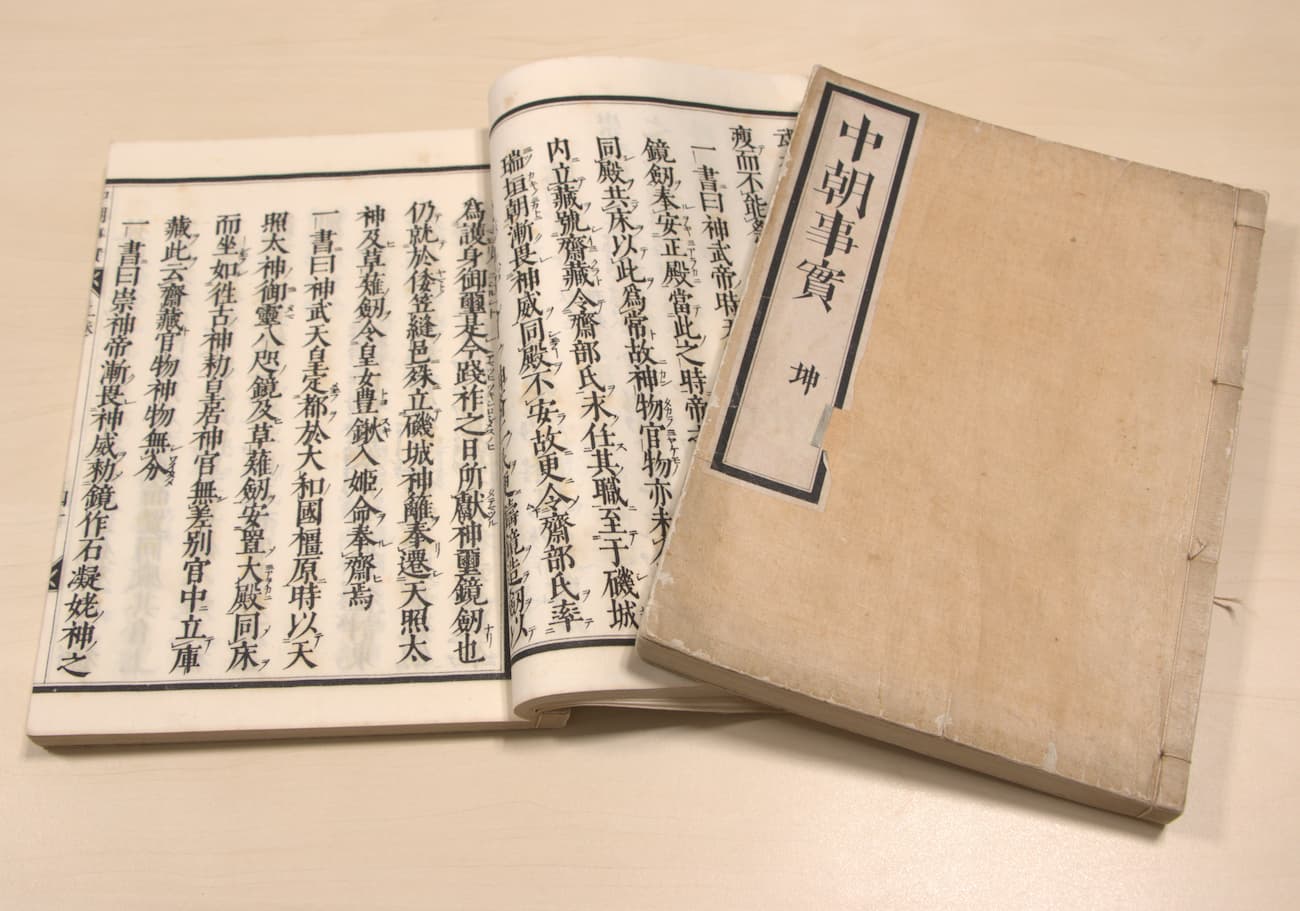 中朝事實
坤
瘦而不能
一書曰神武帝時
鏡劒奉安正殿當此之時帝
同殿共床以此爲常故神物官物亦未
内立藏號齋藏令齋部氏永任其職至于磯城
瑞垣朝漸畏神威同殿不安故更令齋部氏率
鏡造劒以
爲護身御璽是今踐祚之日所獻神璽鏡劒也
仍就於倭笠縫邑殊立磯城神籬奉遷天照太
神及草薙劒令皇女豊鍬入姬命奉齋焉
一書曰神武天皇定都於大和國橿原時以天
照太神御靈八咫鏡及草薙劒安置大殿同床
而坐如徃古神勑皇居神官無差别官中立庫
藏此云齋藏官物神物無分
一書曰崇神帝漸畏神威勑鏡作石凝姥神之